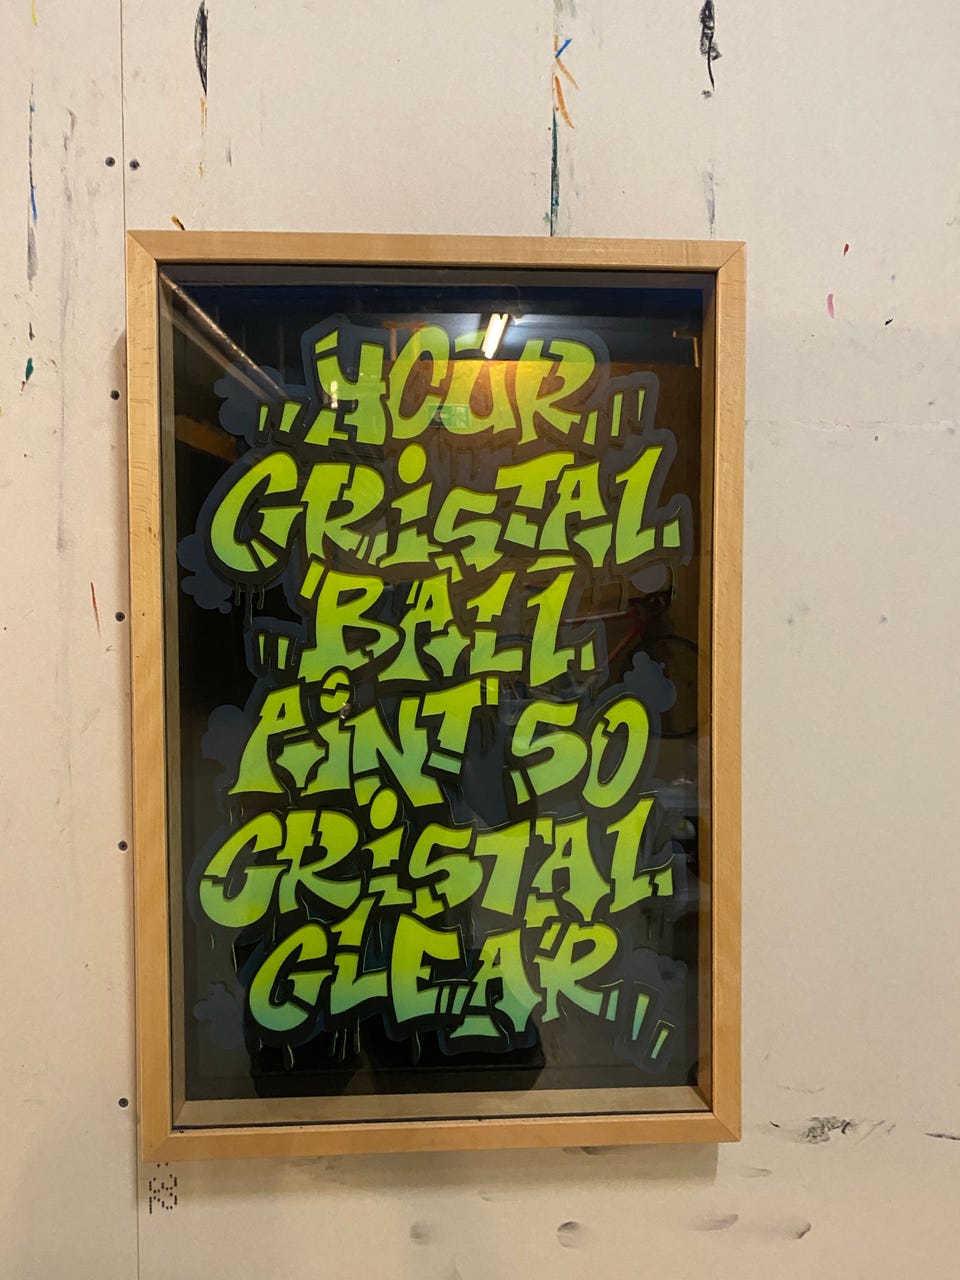 YOUR
CRISTAL
BALL
AiNT SO
CRiSTAL
CLEAR